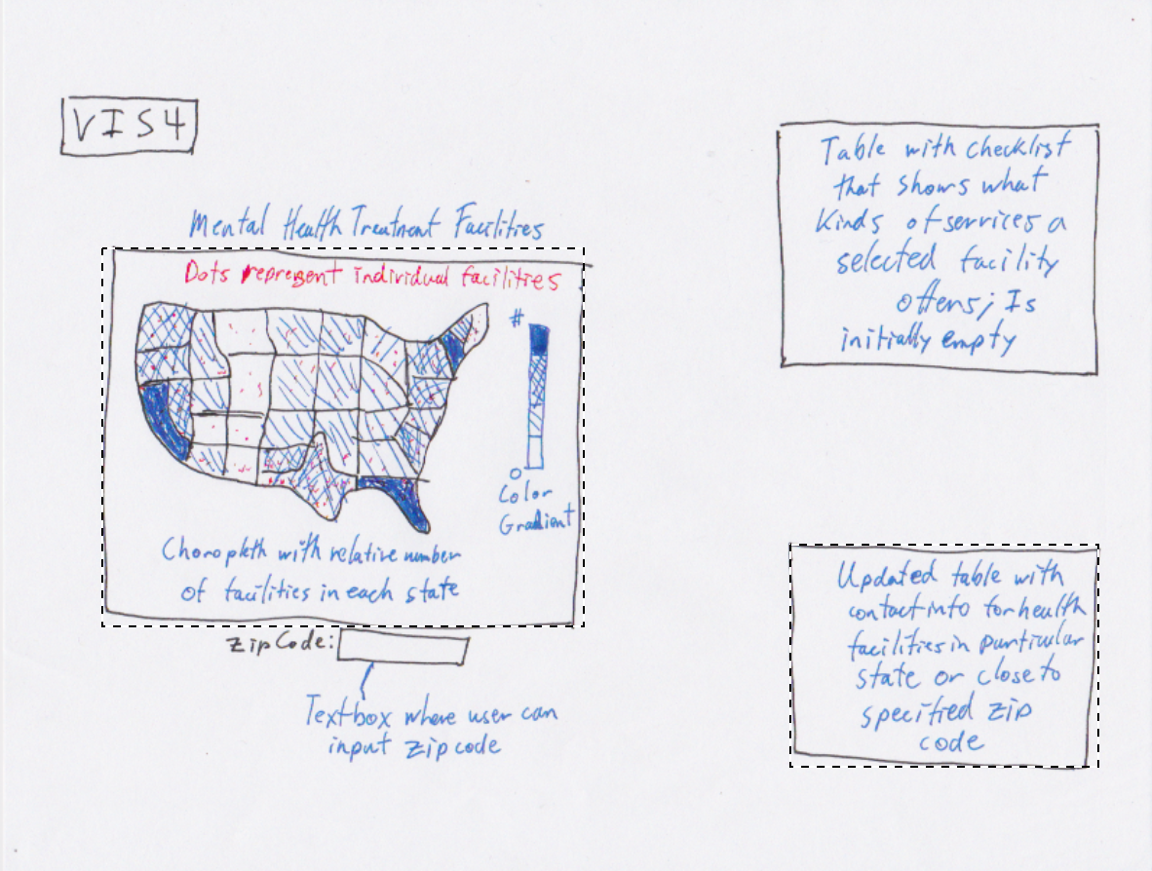 VIS4
Mental Health Treatment Facilities
Dots represent individual facilities
#
0
Color
Gradient
Choropleth with relative number
of facilities in each state
Zip Code:
Textbox where user can
input zip code
Table with checklist
that shows what
kinds of services a
selected facility
offers; Is
initially empty
Updated table with
contact info for health
facilities in particular
state or close to
specified zip
code